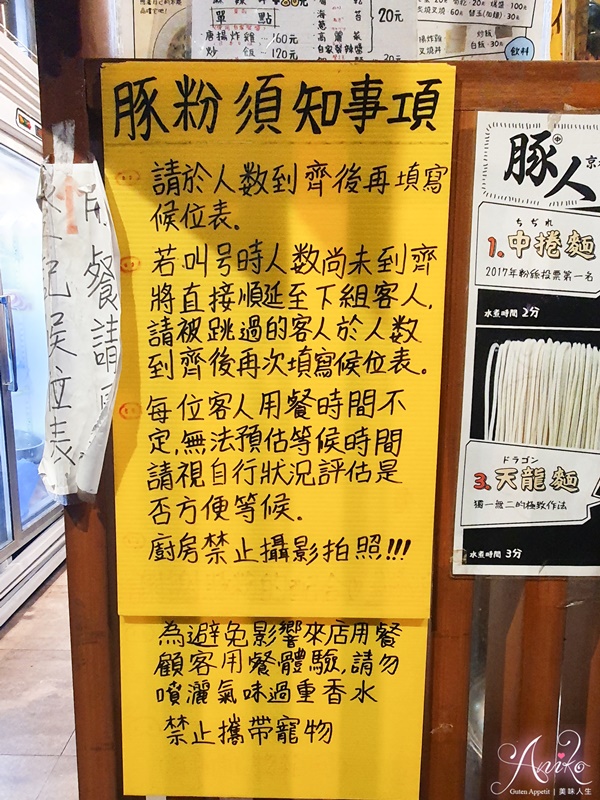 單點
唐揚炸雞 160元
炒飯 120元
20元
飲料
豚粉須知事項
請於人数到齊後再填寫
候位表。
若叫号時人数尚未到齊
將直接順延至下組客人,
請被跳過的客人於人数
到齊後再次填寫候位表。
每位客人用餐時間不
定,無法預估等候時間
請視自行狀況評估是
否方便等候.
廚房禁止攝影拍照!!!
為避免影響來店用餐
顧客用餐體驗,請勿
噴灑氣味過重香水
禁止攜帶寵物
用餐請
記候位表
豚人
ちぢれ
1.中捲麵
2017年粉絲投票第一名
水煮時間 2分
ドラゴン
3.天龍麵
獨一無二的極致作法
水煮時間 3分
Aniko
Guten Appetit | 美味人生